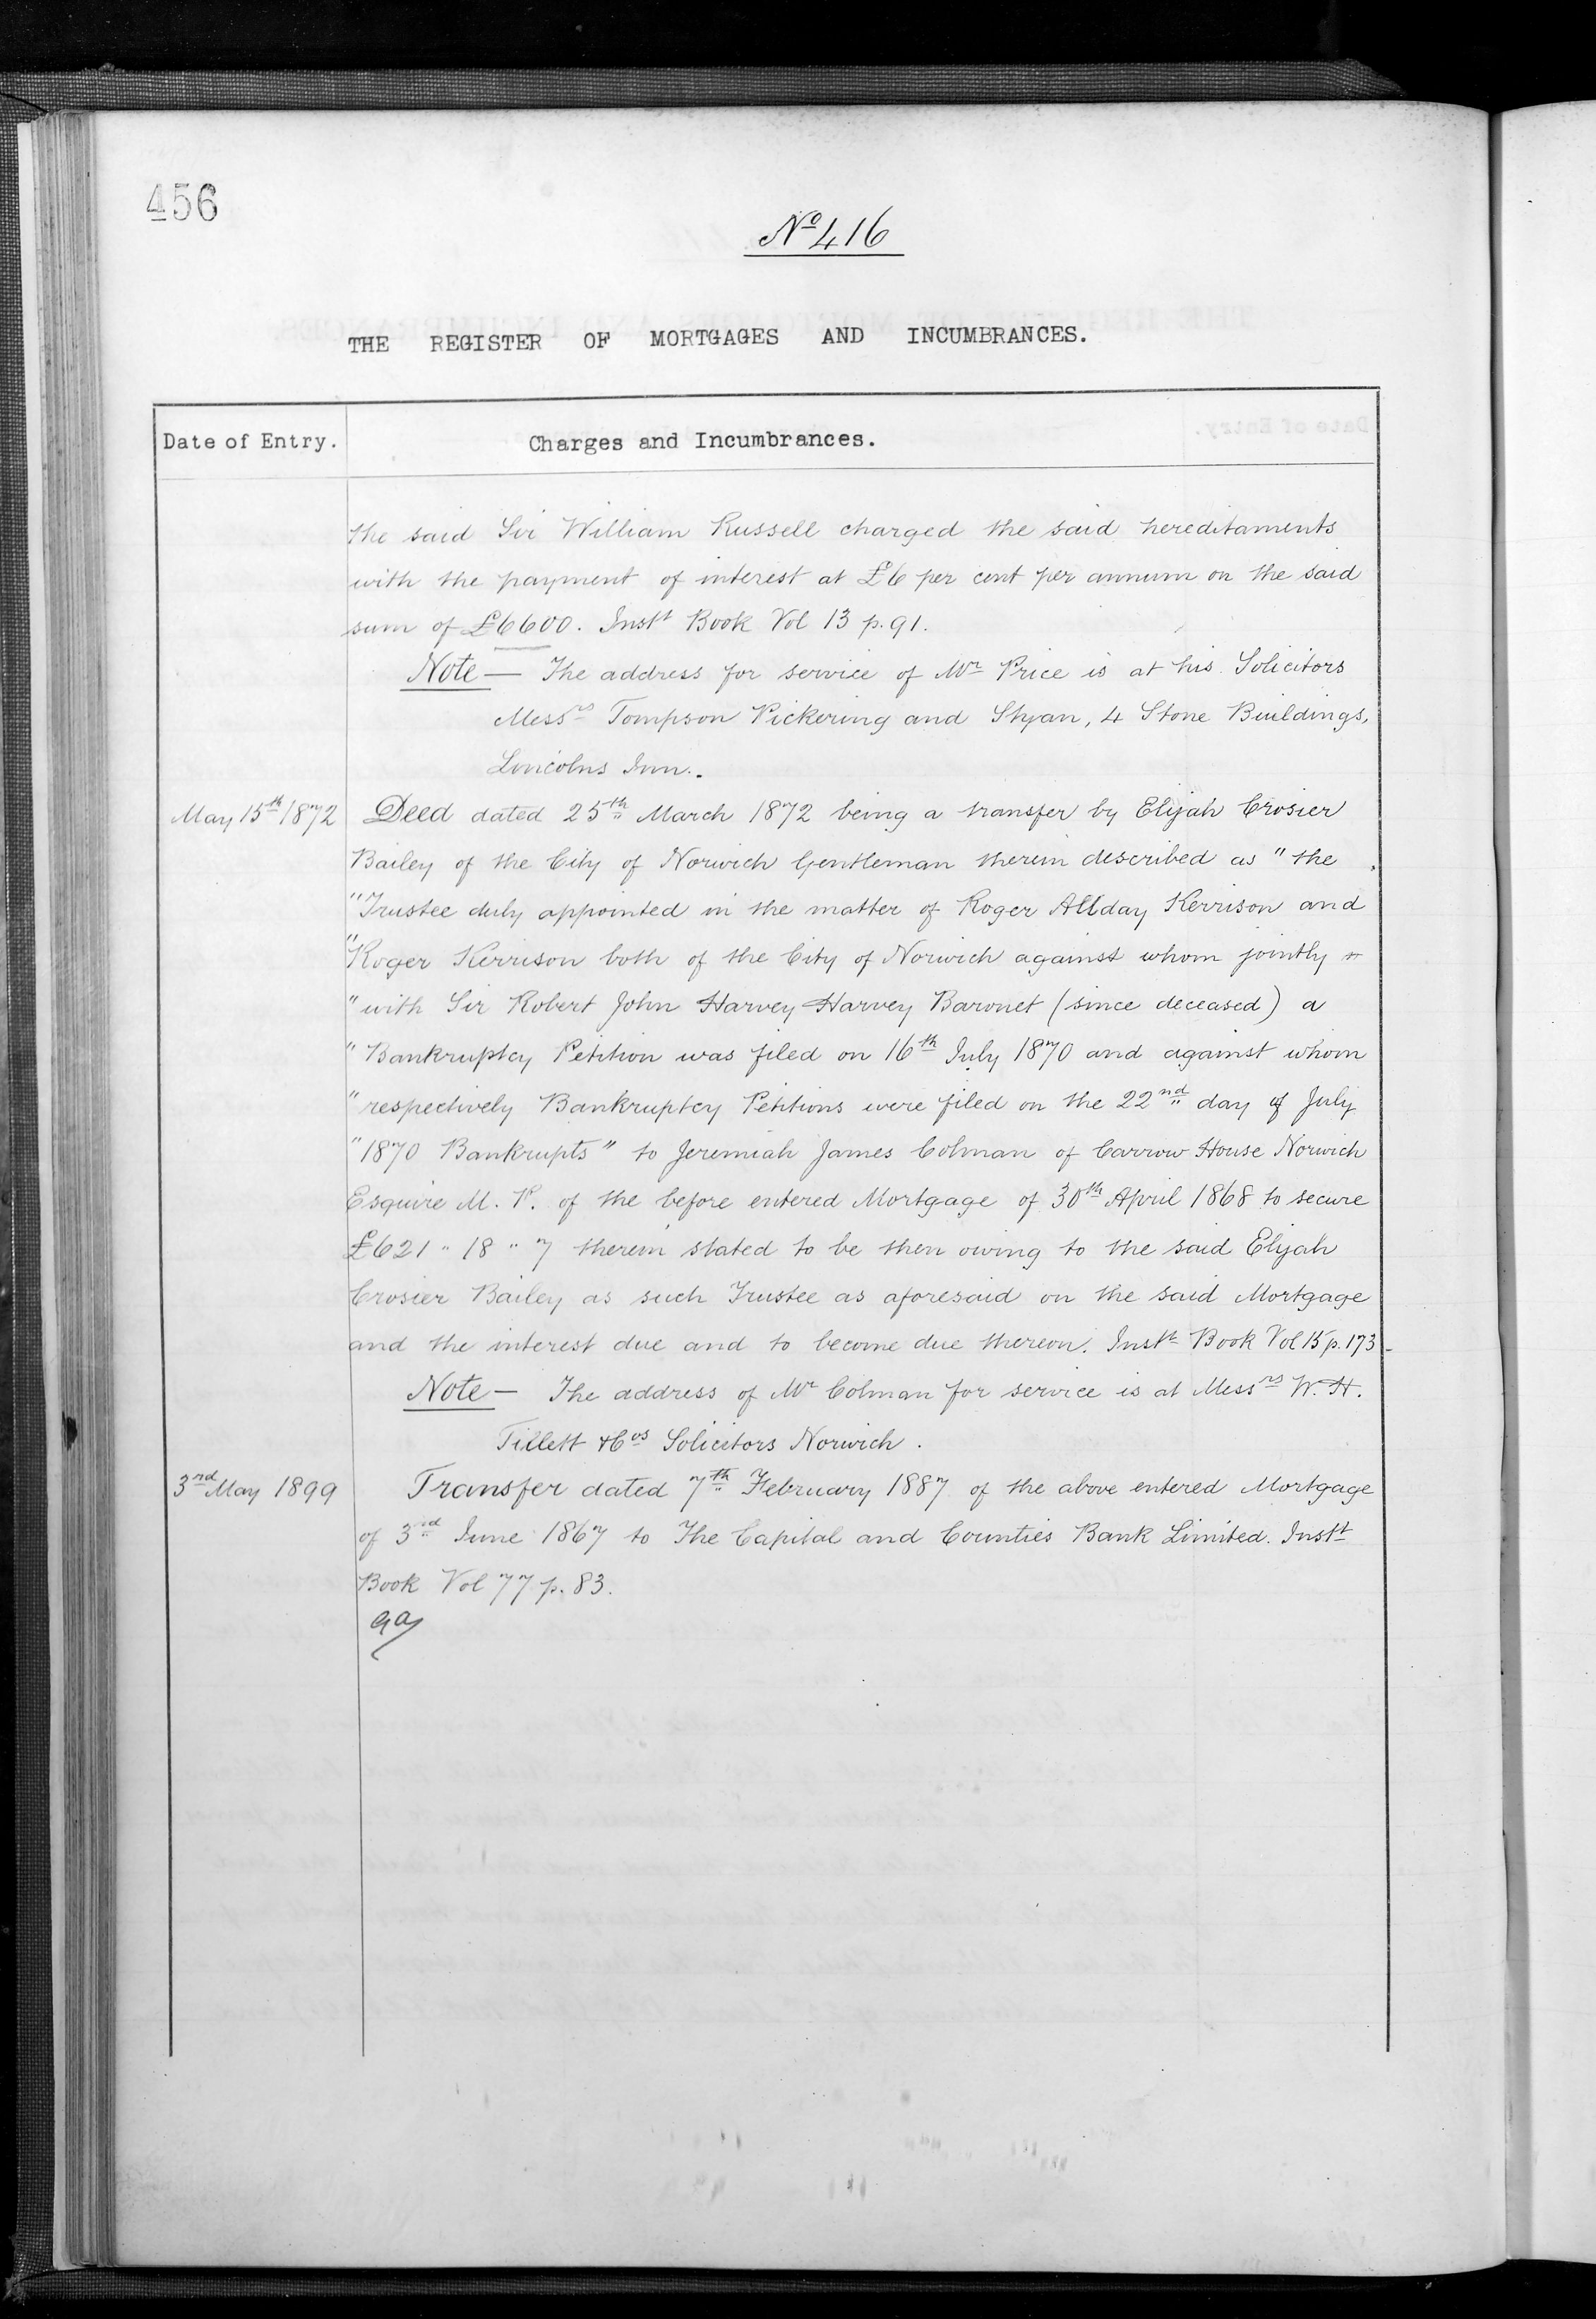 456
No 416
THE REGISTER OF MORTGAGES AND INCUMBRANCES.
Date of Entry. Charges and Incumbrances.
the said Sir William Russell charged the said hereditaments
with the payment of interest at £6 per cent per annum on the said
sum of £6600. Instt Book Vol 13 p. 91.
Note — The address for service of Mr Price is at his Solicitors
Messrs Tompson Pickering and Styan, 4 Stone Buildings,
Lincolns Inn.
May 15th 1872 Deed dated 25th March 1872 being a transfer by Elijah Crosier
Bailey of the City of Norwich Gentleman therein described as "the
"Trustee duly appointed in the matter of Roger Allday Kerrison and
"Roger Kerrison both of the City of Norwich against whom jointly
"with Sir Robert John Harvey Harvey Baronet (since deceased) a
"Bankruptcy Petition was filed on 16th July 1870 and against whom
"respectively Bankruptcy Petitions were filed on the 22nd day of July
"1870 Bankrupts" to Jeremiah James Colman of Carrow House Norwich
Esquire M. P. of the before entered Mortgage of 30th April 1868 to secure
£621 " 18 " 7 therein stated to be then owing to the said Elijah
Crosier Bailey as such Trustee as aforesaid on the said Mortgage
and the interest due and to become due thereon. Instt Book Vol 15 p. 173
Note — The address of Mr Colman for service is at Messrs W. H.
Tillett & Cos Solicitors Norwich.
3rd May 1899 Transfer dated 7th February 1887 of the above entered Mortgage
of 3rd June 1867 to The Capital and Counties Bank Limited. Instt
Book Vol 77 p. 83.